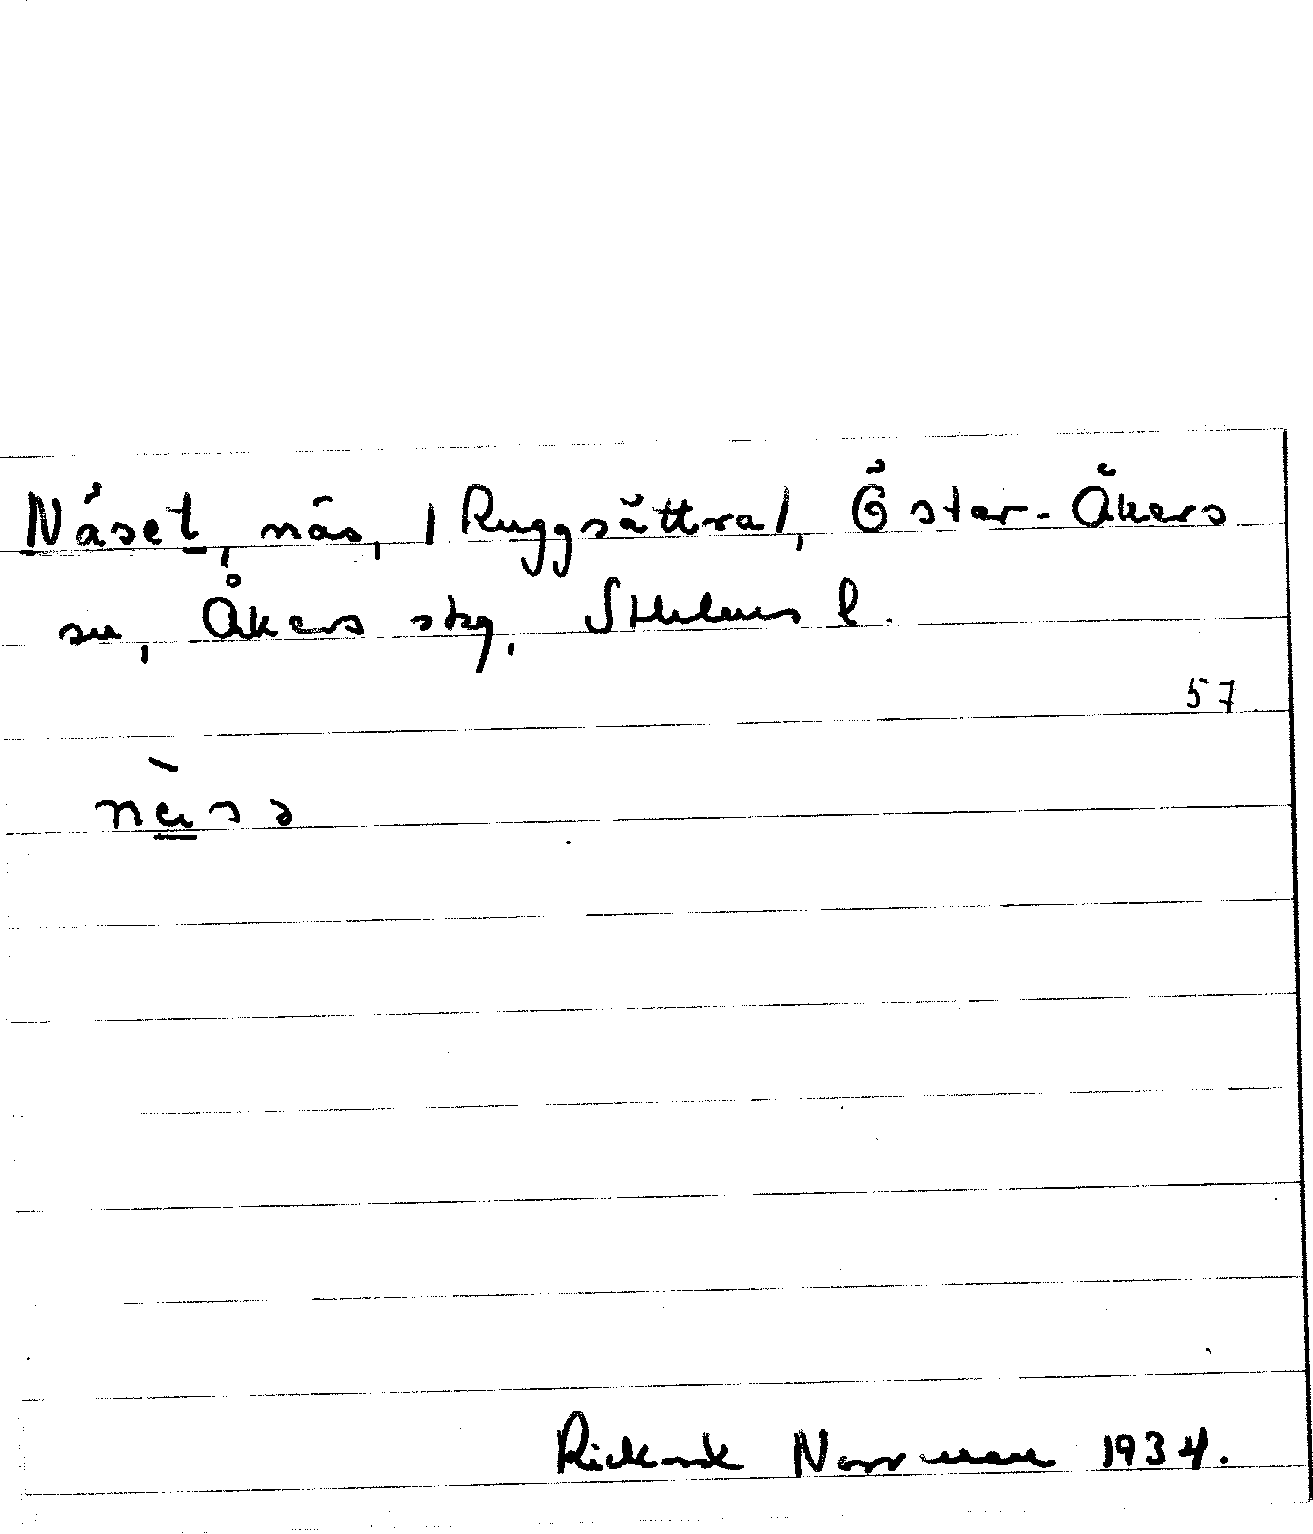 Näset, näs, /Ruggsättra/, Öster-Åkers
sn, Åkers skg, Sthlms l.
57
nä̀sə
Rickard Norrman 1934.